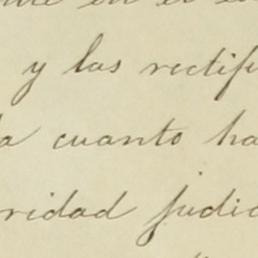 en el
y las rectifi
a cuanto ha
ridad judic